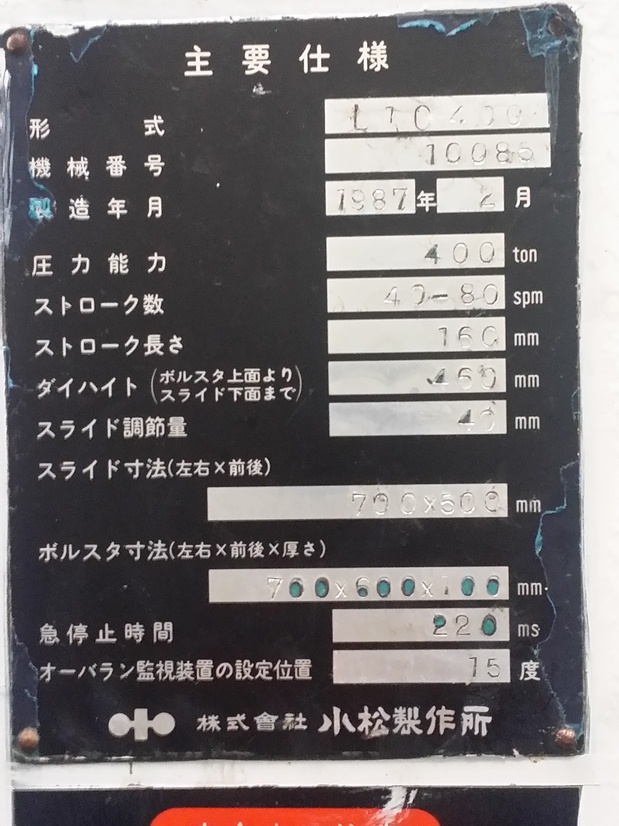 主要仕様
形式 L1C400
機械番号 10086
製造年月 1987年 2月
圧力能力 400 ton
ストローク数 40-80 spm
ストローク長さ 160 mm
ダイハイト(ボルスタ上面より
スライド下面まで) 460 mm
スライド調節量 mm
スライド寸法(左右×前後)
700×500 mm
ボルスタ寸法(左右×前後×厚さ)
700×600×100 mm
急停止時間 220 ms
オーバラン監視装置の設定位置 15 度
株式會社 小松製作所